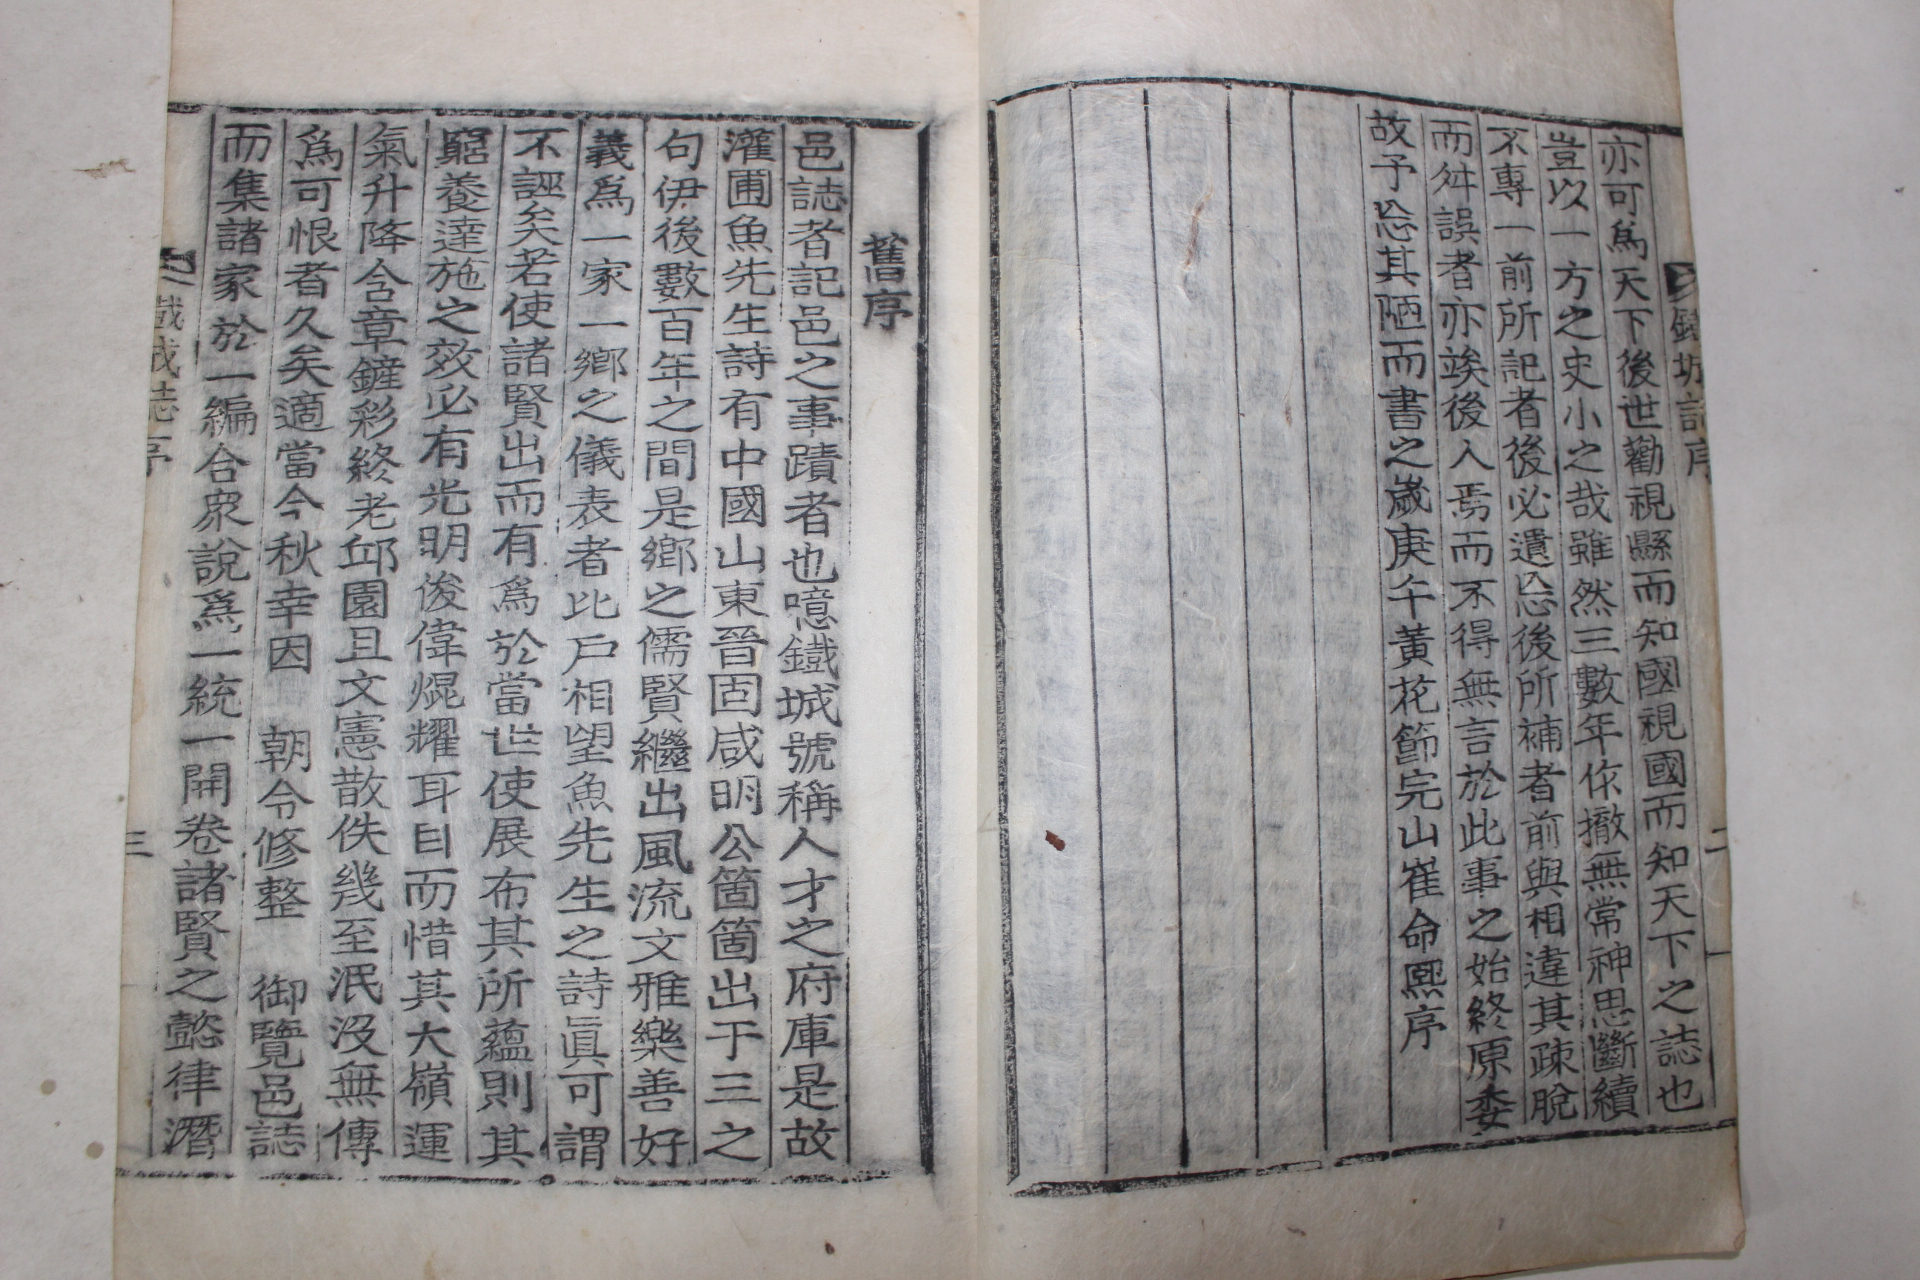 鐵城誌序
二
亦可爲天下後世勸視縣而知國視國而知天下之誌也
豈以一方之史小之哉雖然三數年作撤無常神思斷續
不專一前所記者後必遺忘後所補者前與相違其疎脫
而舛誤者亦竢後人焉而不得無言於此事之始終原委
故予忘其陋而書之歲庚午黃花節完山崔命熙序
舊序
邑誌者記邑之事蹟者也噫鐵城號稱人才之府庫是故
灌圃魚先生詩有中國山東晉固咸明公箇箇出于三之
句伊後數百年之間是鄕之儒賢繼出風流文雅樂善好
義爲一家一鄕之儀表者比戶相望魚先生之詩眞可謂
不誣矣若使諸賢出而有爲於當世使展布其所蘊則其
窮養達施之效必有光明俊偉焜耀耳目而惜其大嶺運
氣升降含章鏟彩終老邱園且文憲散佚幾至泯沒無傳
爲可恨者久矣適當今秋幸因 朝令修整 御覽邑誌
而集諸家於一編合衆說爲一統一開卷諸賢之懿律潛
鐵城誌序
三